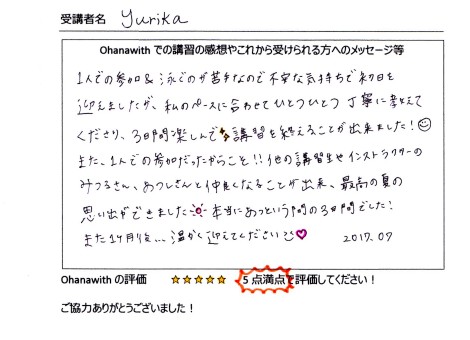 受講者名 Yurika
Ohanawith での講習の感想やこれから受けられる方へのメッセージ等
1人での参加&泳ぐのが苦手なので不安な気持ちで初日を
迎えましたが、私のペースに合わせてひとつひとつ丁寧に教えて
くださり、3日間楽しんで講習を終えることが出来ました!
また、1人での参加だったからこそ!!他の講習生やインストラクターの
みつるさん、あつしさんと仲良くなることが出来、最高の夏の
思い出ができました 本当にあっという間の3日間でした!
また1ヶ月後... 温かく迎えてください
2017.07
Ohanawith の評価 ★★★★★ 5 点満点で評価してください!
ご協力ありがとうございました!